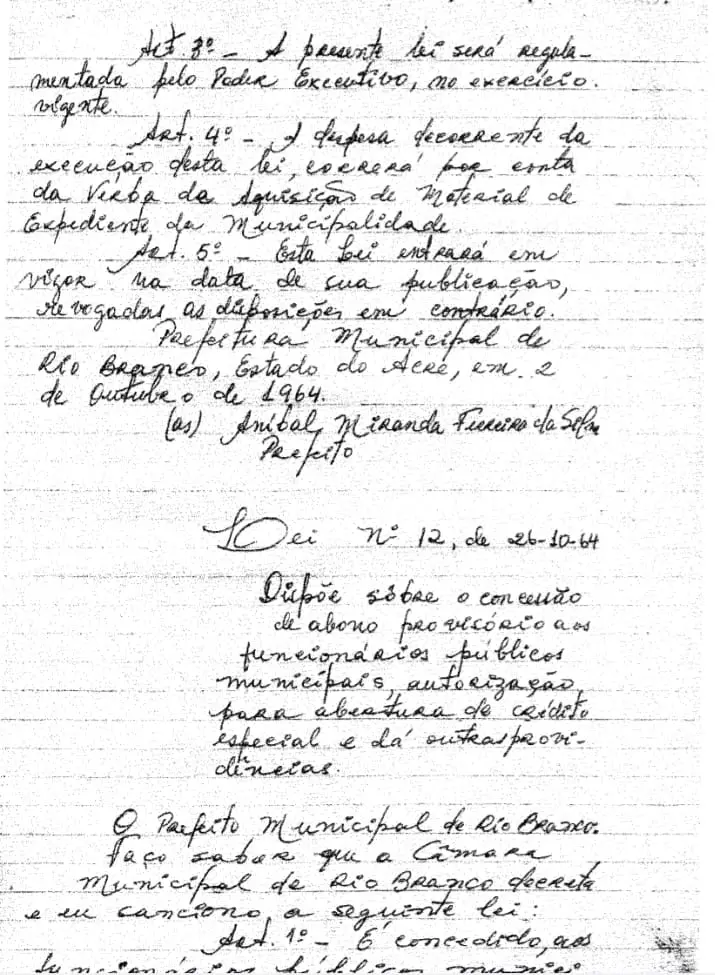 Art. 3º - A presente lei será regula-
mentada pelo Poder Executivo, no exercício.
vigente.
Art. 4º - A despesa decorrente da
execução desta lei, correrá por conta
da Verba da Aquisição de Material de
Expediente da Municipalidade.
Art. 5º - Esta Lei entrará em
vigor na data de sua publicação,
revogadas as disposições em contrário.
Prefeitura Municipal de
Rio Branco, Estado do Acre, em 2
de Outubro de 1964.
(as) Anibal Miranda Ferreira da Silva
Prefeito
Lei Nº 12, de 26-10-64
Dispõe sôbre o concessão
de abono provisório aos
funcionários públicos
municipais, autorização
para abertura de crédito
especial e dá outras provi-
dências.
O Prefeito Municipal de Rio Branco.
Faço saber que a Câmara
Municipal de Rio Branco decreta
e eu sanciono, a seguinte lei:
Art. 1º - É concedido, aos
funcionários públicos munici